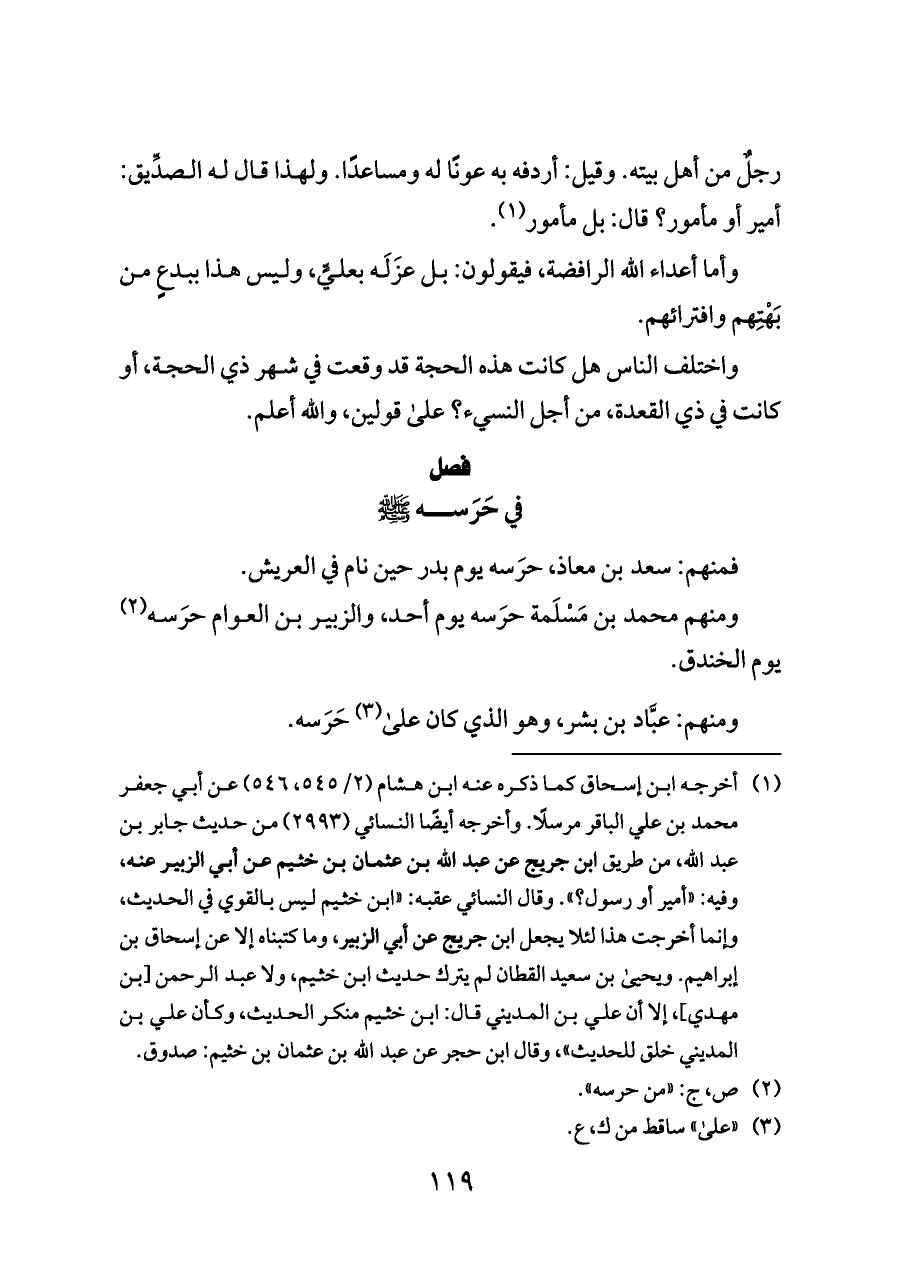 رجلٌ من أهل بيته. وقيل: أردفه به عونًا له ومساعدًا. ولهذا قال له الصدِّيق:
أمير أو مأمور؟ قال: بل مأمور(١).
وأما أعداء الله الرافضة، فيقولون: بل عزَلَه بعليٍّ، وليس هذا ببدعٍ من
بَهْتِهم وافترائهم.
واختلف الناس هل كانت هذه الحجة قد وقعت في شهر ذي الحجة، أو
كانت في ذي القعدة، من أجل النسيء؟ علىٰ قولين، والله أعلم.
فصل
في حَرَسه ﷺ
فمنهم: سعد بن معاذ، حرَسه يوم بدر حين نام في العريش.
ومنهم محمد بن مَسْلَمة حرَسه يوم أحد، والزبير بن العوام حرَسه(٢)
يوم الخندق.
ومنهم: عبَّاد بن بشر، وهو الذي كان علىٰ(٣) حَرَسه.
(١) أخرجه ابن إسحاق كما ذكره عنه ابن هشام (٢/ ٥٤٥، ٥٤٦) عن أبي جعفر
محمد بن علي الباقر مرسلًا. وأخرجه أيضًا النسائي (٢٩٩٣) من حديث جابر بن
عبد الله، من طريق ابن جريج عن عبد الله بن عثمان بن خثيم عن أبي الزبير عنه،
وفيه: «أمير أو رسول؟». وقال النسائي عقبه: «ابن خثيم ليس بالقوي في الحديث،
وإنما أخرجت هذا لئلا يجعل ابن جريج عن أبي الزبير، وما كتبناه إلا عن إسحاق بن
إبراهيم. ويحيىٰ بن سعيد القطان لم يترك حديث ابن خثيم، ولا عبد الرحمن [بن
مهدي]، إلا أن علي بن المديني قال: ابن خثيم منكر الحديث، وكأن علي بن
المديني خلق للحديث»، وقال ابن حجر عن عبد الله بن عثمان بن خثيم: صدوق.
(٢) ص، ج: «من حرسه».
(٣) «علىٰ» ساقط من ك، ع.
١١٩